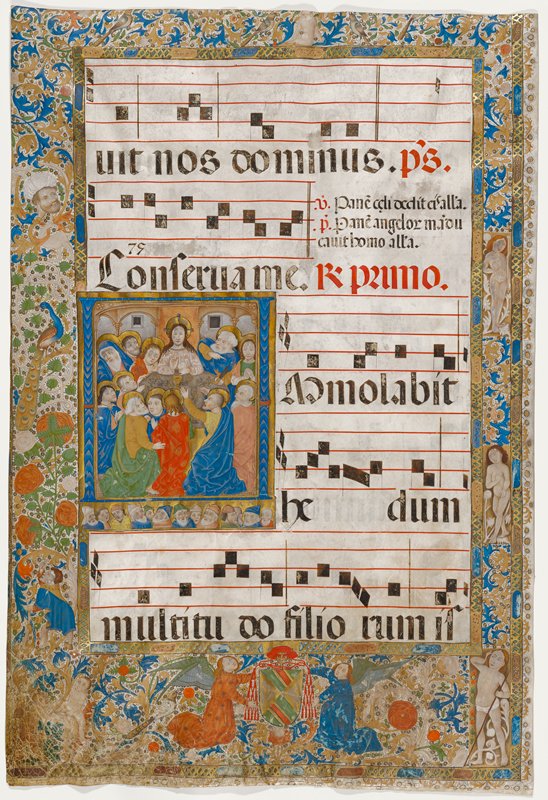 uit nos dominus. ps.
℣. Panē cęli dedit eis alla.
℟. Panē angelor mādu
cauit homo alla.
79
Conserua me. R primo.
Immolabit
he dum
multitu do filio rum is